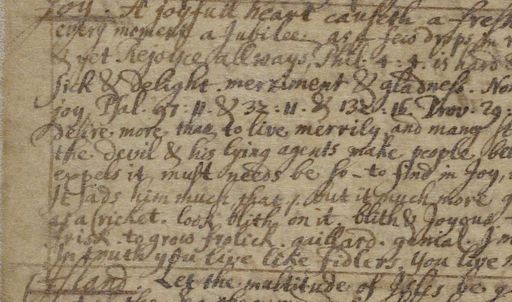 Joy. A joyfull heart causeth a fresh
every moment a Jubilee. as a few drops in
& yet Rejoyce allways, Phil. 4. 4. is hard
sick & delight. merriment & gladness. No
joy Psal. 97. 11. & 32. 11. & 132. 16. Prov. 29.
desire more than to live merrily and many
the devil & his lying agents make people be
expels it, must needs be so - to find in Joy,
It jads him much that, but it much more
as a Cricket. look blith on it. blith & joyous
frisk. to grow frolick. gaillard. genial.
In truth you live like fidlers, you live
Island. Let the multitude of Isles be